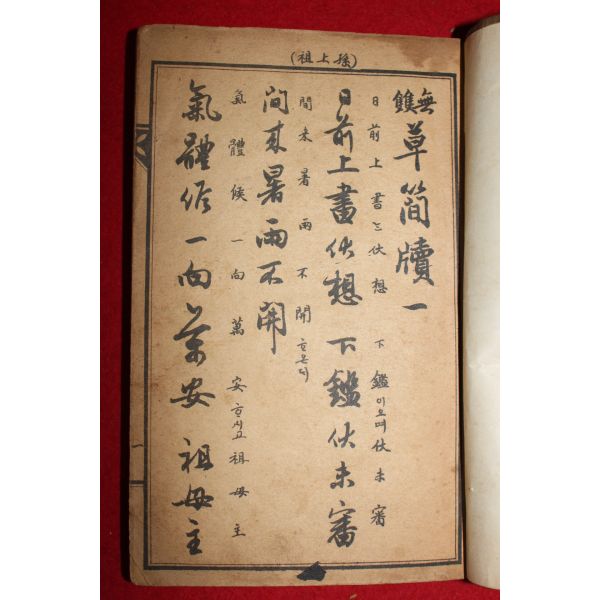 (孫上祖)
無雙
草簡牘一
日前上書는伏想 下鑑이오며伏未審
日前上書伏想 下鑑伏未審
間來暑雨不開ᄒᆞ온ᄃᆡ
間來暑雨不開
氣體候一向萬安ᄒᆞ시고祖母主
氣體候一向萬安 祖母主
一